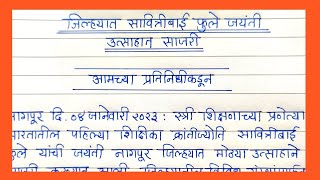 जिल्हयात सावित्रीबाई फुले जयंती
उत्साहात साजरी
आमच्या प्रतिनिधीकडून
नागपूर दि. ०४ जानेवारी २०२३ : स्त्री शिक्षणाच्या प्रणेत्या
भारतातील पहिल्या शिक्षिका क्रांतीज्योति सावित्रीबाई
फुले यांची जयंती नागपूर जिल्हयात मोठया उत्साहाने